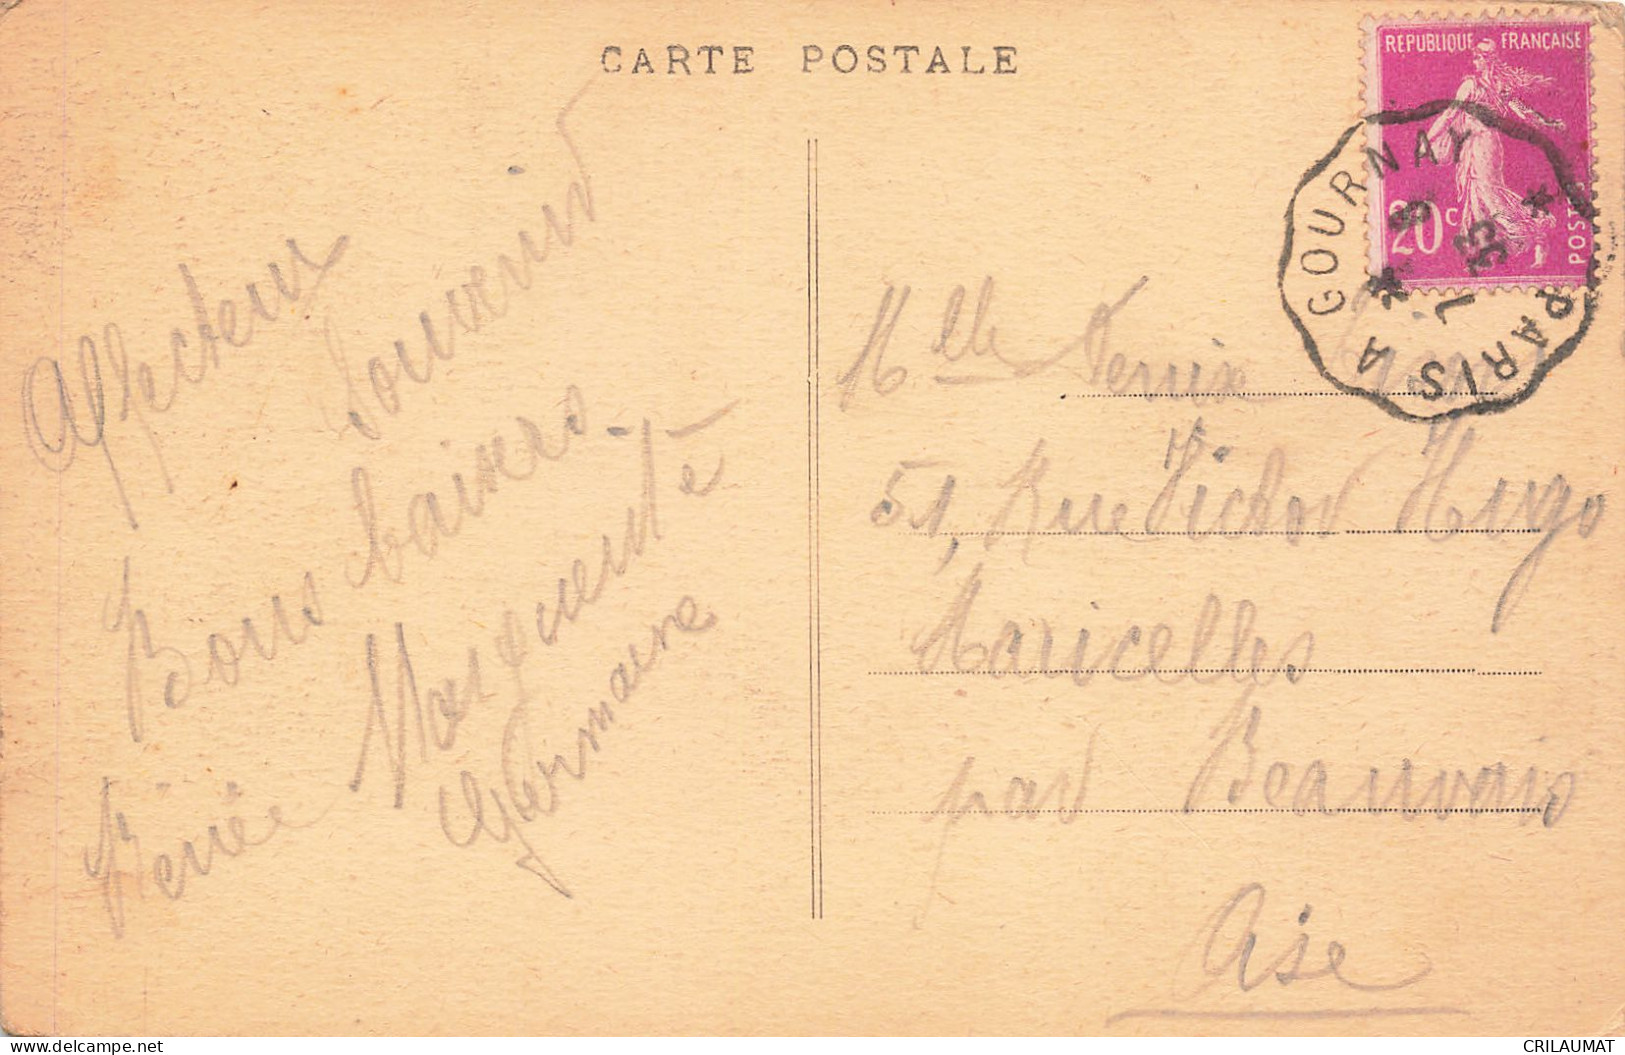 CARTE POSTALE
RÉPUBLIQUE FRANÇAISE
20c
POST
GOURNAY
A PARIS
33
Affecteux
Souvenir
Bons baisers.
Marguerite
Renée
Germaine
Mlle
51, Rue Victor Hugo
Maricelles
par Beauvais
Oise
www.delcampe.net
CRILAUMAT